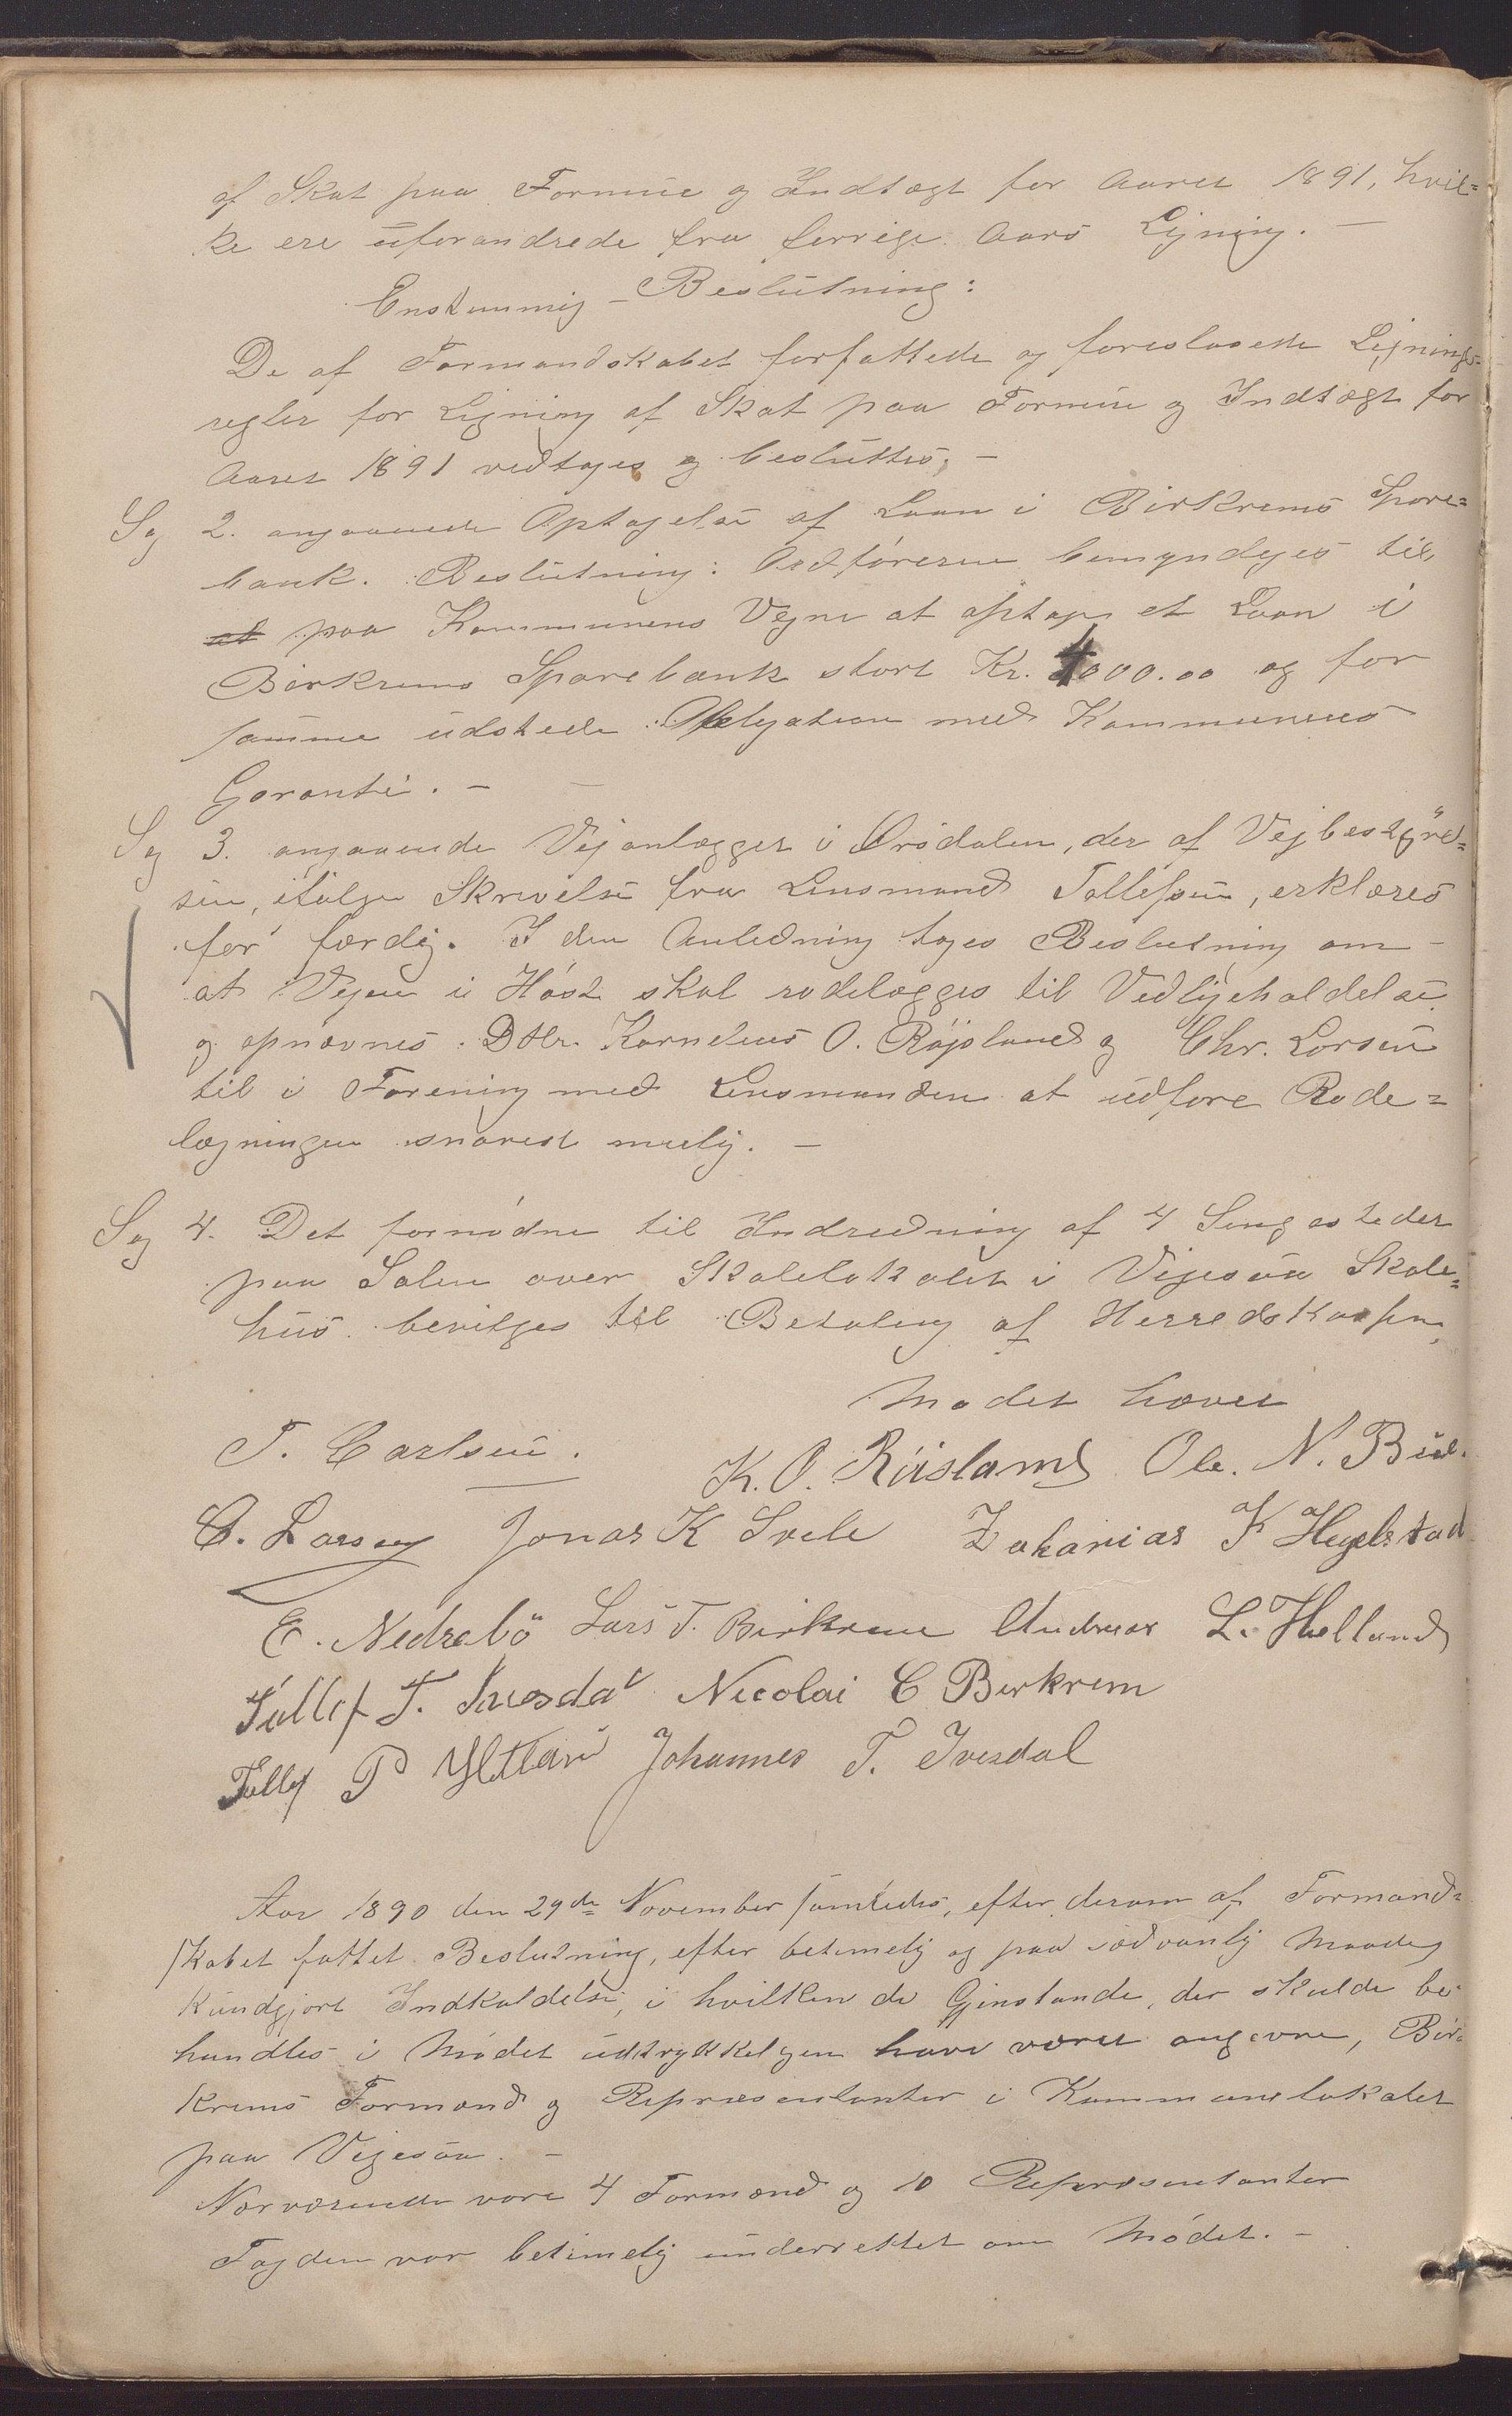 af Skat paa Formue og Indtægt for Aaret 1891, hvil=
ke ere uforandrede fra forrige Aars Ligning. —
Enstemmig Beslutning:
De af Formandskabet forfattede og foreslaaede Lignings=
regler for Ligning af Skat paa Formue og Indtægt for
Aaret 1891 vedtages og besluttes. —
Sag 2. angaaende Optagelse af Laan i Birkrems Spare=
bank. Beslutning: Ordføreren bemyndiges til
at paa Kommunens Vegne at optage et Laan i
Birkrems Sparebank stort Kr. 4000.00 og for
samme udstede Obligation med Kommunens
Garanti. —
Sag 3. angaaende Vejanlægget i Ørsdalen, der af Vejbestyrel=
sen, ifølge Skrivelse fra Lensmand Tollefsen, erklæres
for færdig. I den Anledning toges Beslutning om
at Vejen i Høst skal rodelægges til Vedligeholdelse
og opnævnes DHr. Kornelius O. Røjsland og Chr. Larsen
til i Forening med Lensmanden at udføre Rode=
lægningen snarest mulig. —
Sag 4. Det fornødne til Indredning af 4 Sengesteder
paa Salen over Skolelokalet i Vigesaa Skole=
hus bevilges til Betaling af Herredskassen,
Mødet hævet
T. Carlsen. K. O. Röisland Ole. N. Bue.
C. Larsen Jonas K Svele Zakarias K Hegelstad
E. Nedrebö Lars T. Birkrem Andreas L. Helland
Tollef T. Ivesdal Nicolai C Berkrem
Tollef P Johannes T. Ivesdal
Aar 1890 den 29de November samledes, efter derom af Formand=
skabet fattet Beslutning, efter betimelig og paa sædvanlig Maade
kundgjort Indkaldelse, i hvilken de Gjenstande, der skulde be=
handles i Mødet udtrykkeligen have været angivne, Bir=
krems Formænd og Repræsentanter i Kommunelokalet
paa Vigesaa. —
Nærværende vare 4 Formænd og 10 Repræsentanter
Fogden var betimelig underrettet om Mødet. —